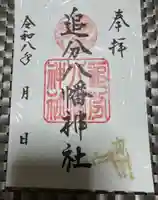 奉拝
追分八幡神社
令和八年 月 日